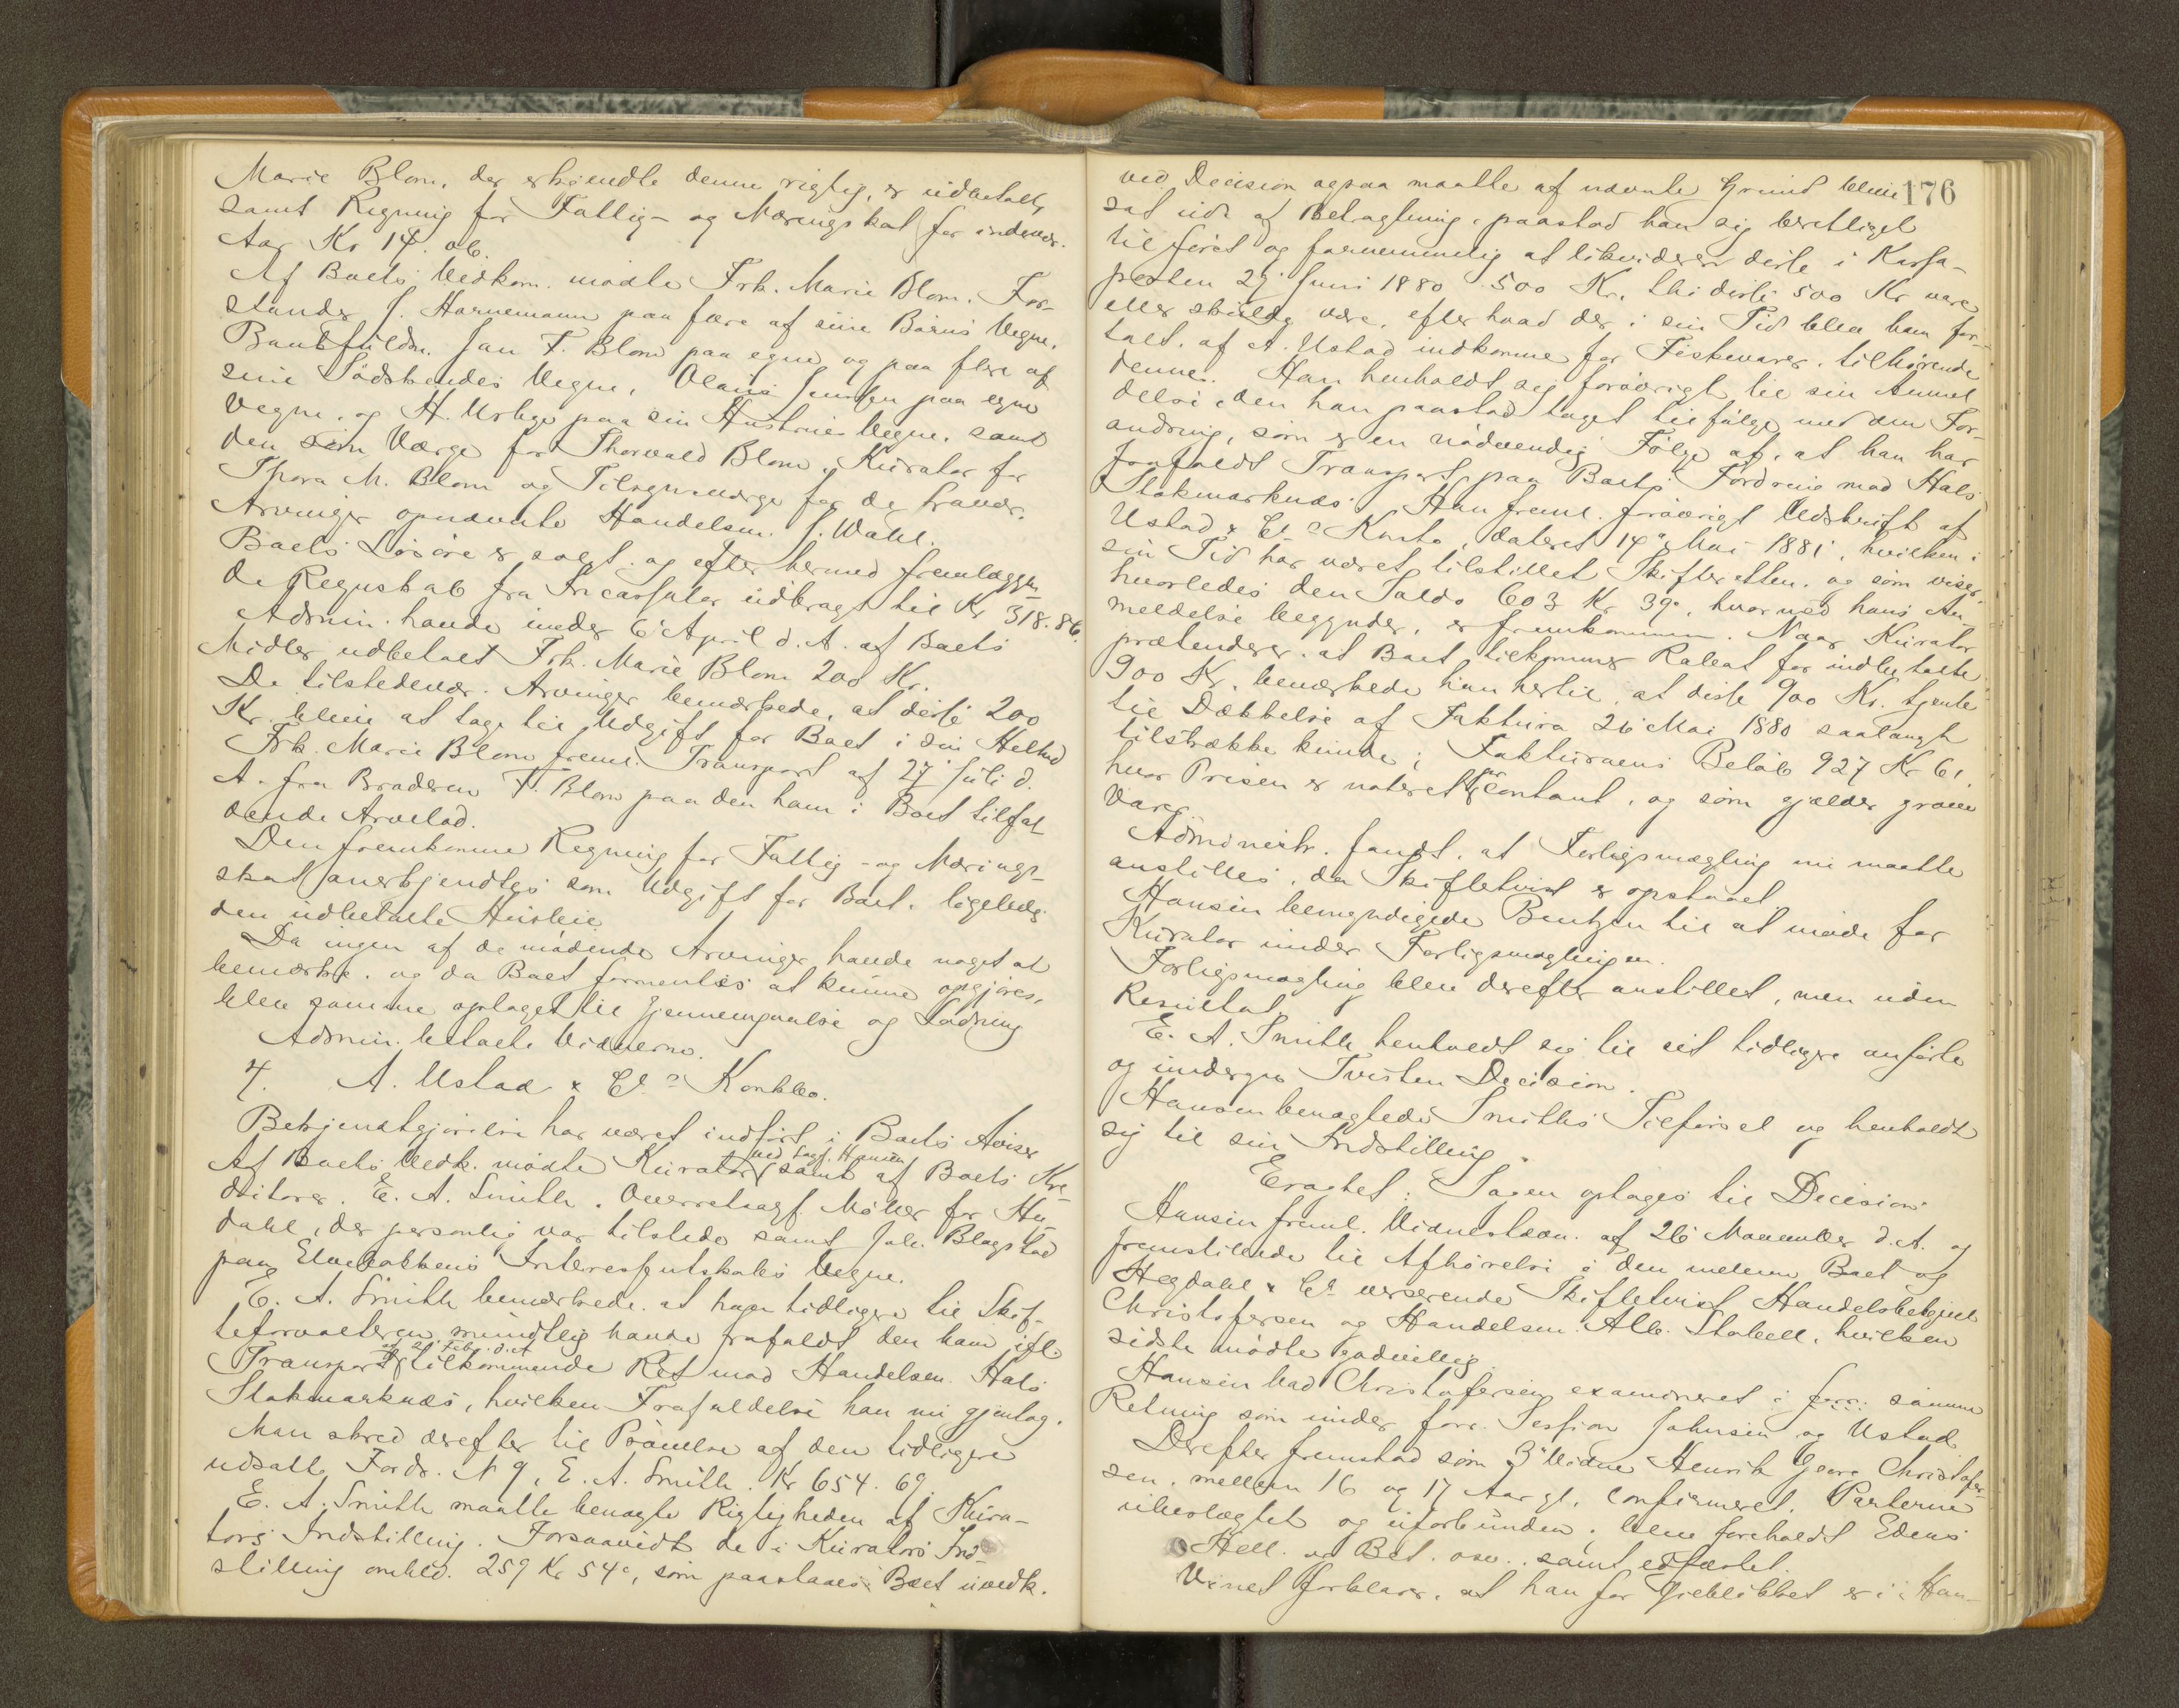 Marie Blom, der erkjendte denne rigtig, er udbetalt,
samt Regning for Fattig- og Næringskat for indevær.
Aar Kr 14. 06.
Af Boets Vedkom. mødte Frk. Marie Blom, For-
stander J. Hornemann paa flere af sine Børns Vegne,
Bankfuldm. Jan F. Blom paa egne og paa flere af
sine Sødskendes Vegne, Olaus Jensen paa egne
Vegne, og H. Urbye paa sin Hustrues Vegne, samt
den som Værge for Thorvald Blom, Kurator for
Thora M. Blom og Tilsynsværge for de fravær.
Arvinger opnævnte Handelsm. J. Wahl.
Boets Løsøre er solgt og efter hermed fremlæggen-
de Regnskab fra Incassator udbragt til Kr 318.86.
Admin. havde under 6' April d. A. af Boets
Midler udbetalt Frk. Marie Blom 200 Kr.
De tilstedevær. Arvinger bemærkede, at disse 200
Kr. blive at tage til Udgift for Boet i sin Helhed
Frk. Marie Blom freml. Transport af 27' Juli d.
A. fra Broderen F. Blom paa den ham i Boet tilfal-
dende Arvelod.
Den fremkomne Regning for Fattig- og Nærings-
skat anerkjendtes som Udgift for Boet, ligeledes
den udbetalte Husleie.
Da ingen af de mødende Arvinger havde noget at
bemærke, og da Boet formentes at kunne opgjøres,
blev samme optaget til Gjennemgaaelse og Lodning
Admin. betalte Vidnerne.
7. A. Ustad & Co Konkbo.
Bekjendtgjørelse har været indført i Boets Aviser
Af Boets Vedk. mødte Kurator ved Sagf. Hansen samt af Boets Kre-
ditorer. E. A. Smith. Overretssagf. Møller for He-
dahl, der personlig var tilstede samt Joh. Blegstad
paa Elvebakkens Interessentskabs Vegne.
E. A. Smith bemærkede at han tidligere til Skif-
teforvalteren mundtlig havde frafaldt den ham ifl.
Transport af 21 Febr. d. A. tilkommende Ret mod Handelsm. Hals
Stokmarknæs, hvilken Frafaldelse han nu gjentog.
Man skred derefter til Prøvelse af den tidligere
udsatte Fordr. N 9, E. A. Smith. Kr 654. 69.
E. A. Smith maatte benægte Rigtigheden af Kura-
tors Indstilling. Forsaavidt de i Kurators Ind-
stilling omhld. 259 Kr 54 o, som paastaaes Boet uvedk.
176
ved Decision ogsaa maatte af nævnte Grund blive
sat ud af Betragtning, paastod han sig berettiget
til først og fornemmelig at likvidere disse i Kassa-
posten 29' Juni 1880 500 Kr. thi disse 500 Kr vare
eller skulde være, efter hvad der i sin Tid blev ham for-
talt, af A. Ustad indkomne for Fiskevarer, tilhørende
denne. Han henholdt sig forøvrigt til sin Anmel-
delse, den han paastod taget tilfølge med den For-
andring, som er en nødvendig Følge af, at han har
frafaldt Transport paa Boets Fordring mod Hals
Stokmarknæs. Han freml. forøvrigt Udskrift af
Ustad & Co's Konto, dateret 14' Mai 1881, hvilken i
sin Tid har været tilstillet Skifteretten, og som viser,
hvorledes den Saldo 603 Kr 39 o, hvormed hans An-
meldelse begynder, er fremkommen. Naar Kurator
prætenderer, at Boet tilkommer Rabat for indbetalte
900 Kr. bemærkede han hertil, at disse 900 Kr. tjente
til Dækkelse af Faktura 26' Mai 1880 saalangt
tilstrække kunde; Fakturaens Beløb 927 Kr 61,
hvor Prisen er noteret pr contant, og som gjælder grove
Varer.
Administr. fandt, at Forligsmægling nu maatte
anstilles, da Skiftetvist er opstaaet.
Hansen bemyndigede Bentzen til at møde for
Kurator under Forligsmæglingen.
Forligsmægling blev derefter anstillet, men uden
Resultat.
E. A. Smith henholdt sig til sit tidligere anførte
og undergav Tvisten Decision.
Hansen benægtede Smiths Tilførsel og henholdt
sig til sin Indstilling.
Eragtet: Sagen optages til Decision.
Hansen freml. Vidnestævn. af 26' November d. A. og
fremstillede til Afhørelse i den mellem Boet og
Hegdahl & Co verserende Skiftetvist Handelsbetjent
Christofersen og Handelsm. Alb. Stabell, hvilken
sidste mødte godvillig.
Hansen bad Christofersen examineret i samme
Retning som under forr. Session Johnsen og Ustad.
Derefter fremstod som 3' Vidne Henrik Georg Christofer-
sen, mellem 16 og 17 Aar gl. confirmeret. Parterne
ubeslægtet og uforbunden; blev foreholdt Edens
Hell. og Bet. osv. samt edfæstet.
Vidnet forklarer, at han for Øieblikket er i Han-